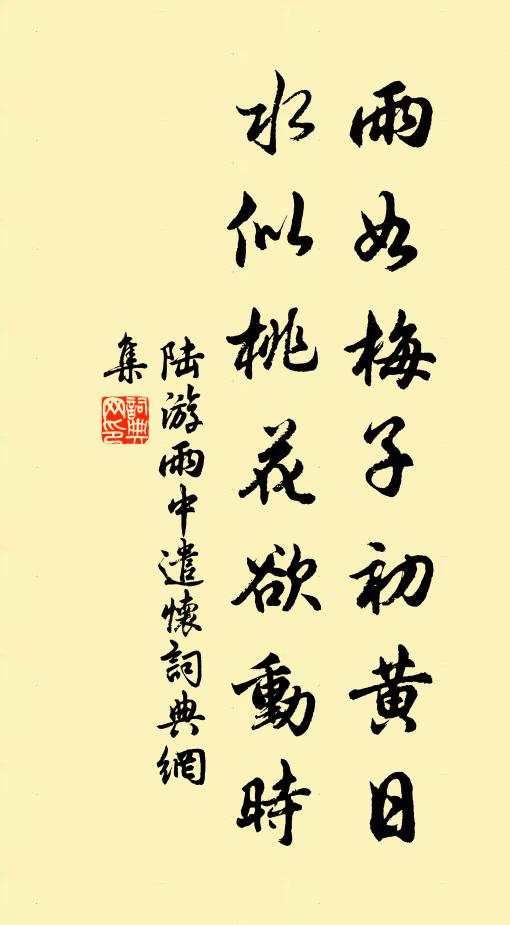 雨如梅子初黄日
水似桃花欲動時
陸游雨中遣懷詞典網
集
詞典
网印